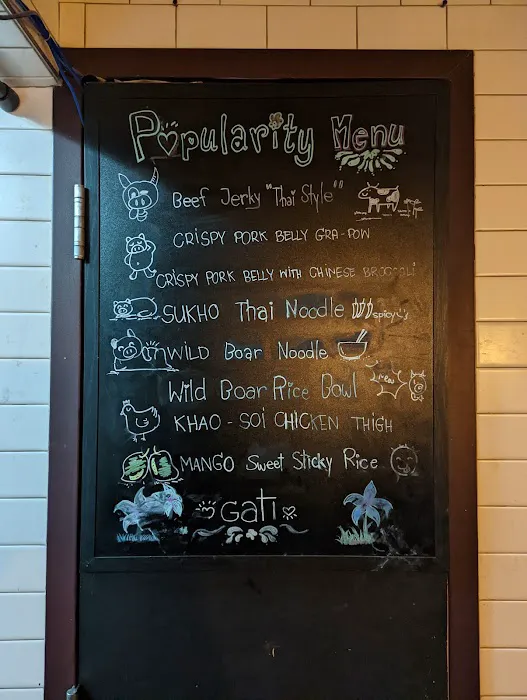 Popularity Menu
Beef Jerky "Thai Style"
CRISPY PORK BELLY GRA-POW
CRISPY PORK BELLY WITH CHINESE BROCCOLI
SUKHO Thai Noodle spicy
WILD Boar Noodle
Wild Boar Rice Bowl
KHAO-SOI CHICKEN THIGH
MANGO Sweet Sticky Rice
GATI